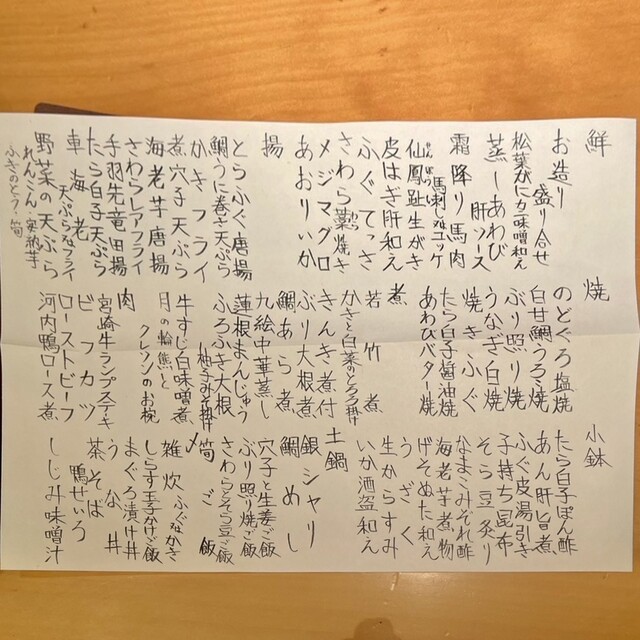 鮮
お造り盛り合せ
松葉がにカニ味噌和え
蒸しあわび肝ソース
霜降り馬肉
馬刺しorユッケ
仙鳳趾生がき
せんぽうし
皮はぎ肝和え
ふぐてっさ
さわら藁焼き
メジマグロ
あおりいか
揚
とらふぐ唐揚
鯛うに巻き天ぷら
かきフライ
煮穴子天ぷら
海老芋唐揚
さわらレアフライ
手羽先竜田揚
たら白子天ぷら
車海老
天ぷらorフライ
野菜の天ぷら
れんこん・安納芋
ふきのとう・筍
焼
のどぐろ塩焼
白甘鯛うろこ焼
ぶり照り焼
うなぎ白焼
焼きふぐ
たら白子醤油焼
あわびバター焼
煮
若竹煮
かきと白菜のとろろ掛け
きんき煮付
ぶり大根煮
鯛あら煮
九絵中華蒸し
蓮根まんじゅう
ふろふき大根
柚子みそ掛け
牛すじ白味噌煮
月の輪熊と
クレソンのお椀
肉
宮崎牛ランプステーキ
ビフカツ
ローストビーフ
河内鴨ロース煮
小鉢
たら白子ぽん酢
あん肝旨煮
ふぐ皮湯引き
子持ち昆布
そら豆炙り
なまこみぞれ酢
海老芋煮物
げそぬた和え
うざく
生からすみ
いか酒盗和え
土鍋
銀シャリ
鯛めし
穴子と生姜ご飯
ぶり照り焼ご飯
さわらとそら豆ご飯
筍ご飯
〆
雑炊 ふぐorかき
しらす玉子かけご飯
まぐろ漬け丼
うな丼
茶そば
鴨せいろ
しじみ味噌汁